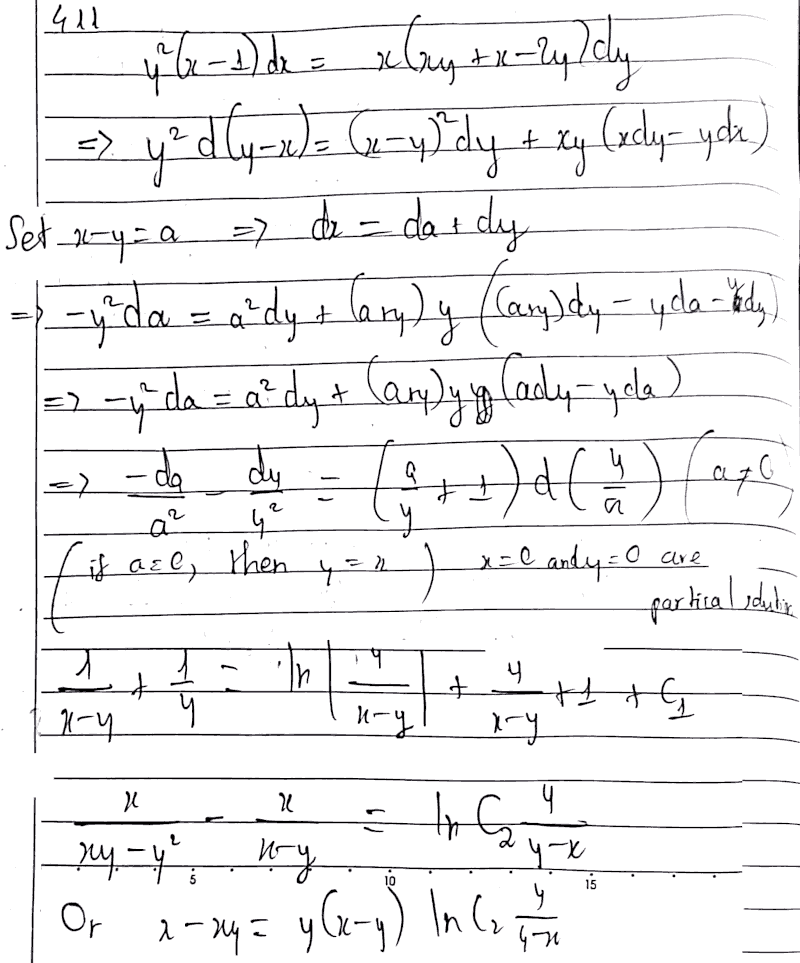 411
y²(x-1)dx = x(xy+x-2y)dy
=> y² d(y-x) = (x-y)² dy + xy (xdy - ydx)
Set x-y=a => dx = da + dy
=> -y²da = a²dy + (a+y) y ((a+y)dy - yda - ydy)
=> -y²da = a²dy + (a+y)y (ady - yda)
=> -da/a² - dy/y² = (a/y + 1) d(y/a) (a≠0)
(if a=0, then y=x) x=0 and y=0 are
partical
1/(x-y) + 1/y = ln|y/(x-y)| + y/(x-y) + 1 + C₁
x/(xy-y²) - x/(x-y) = ln C₂ y/(y-x)
5 10 15
Or x-xy = y(x-y) ln C₂ y/(y-x)